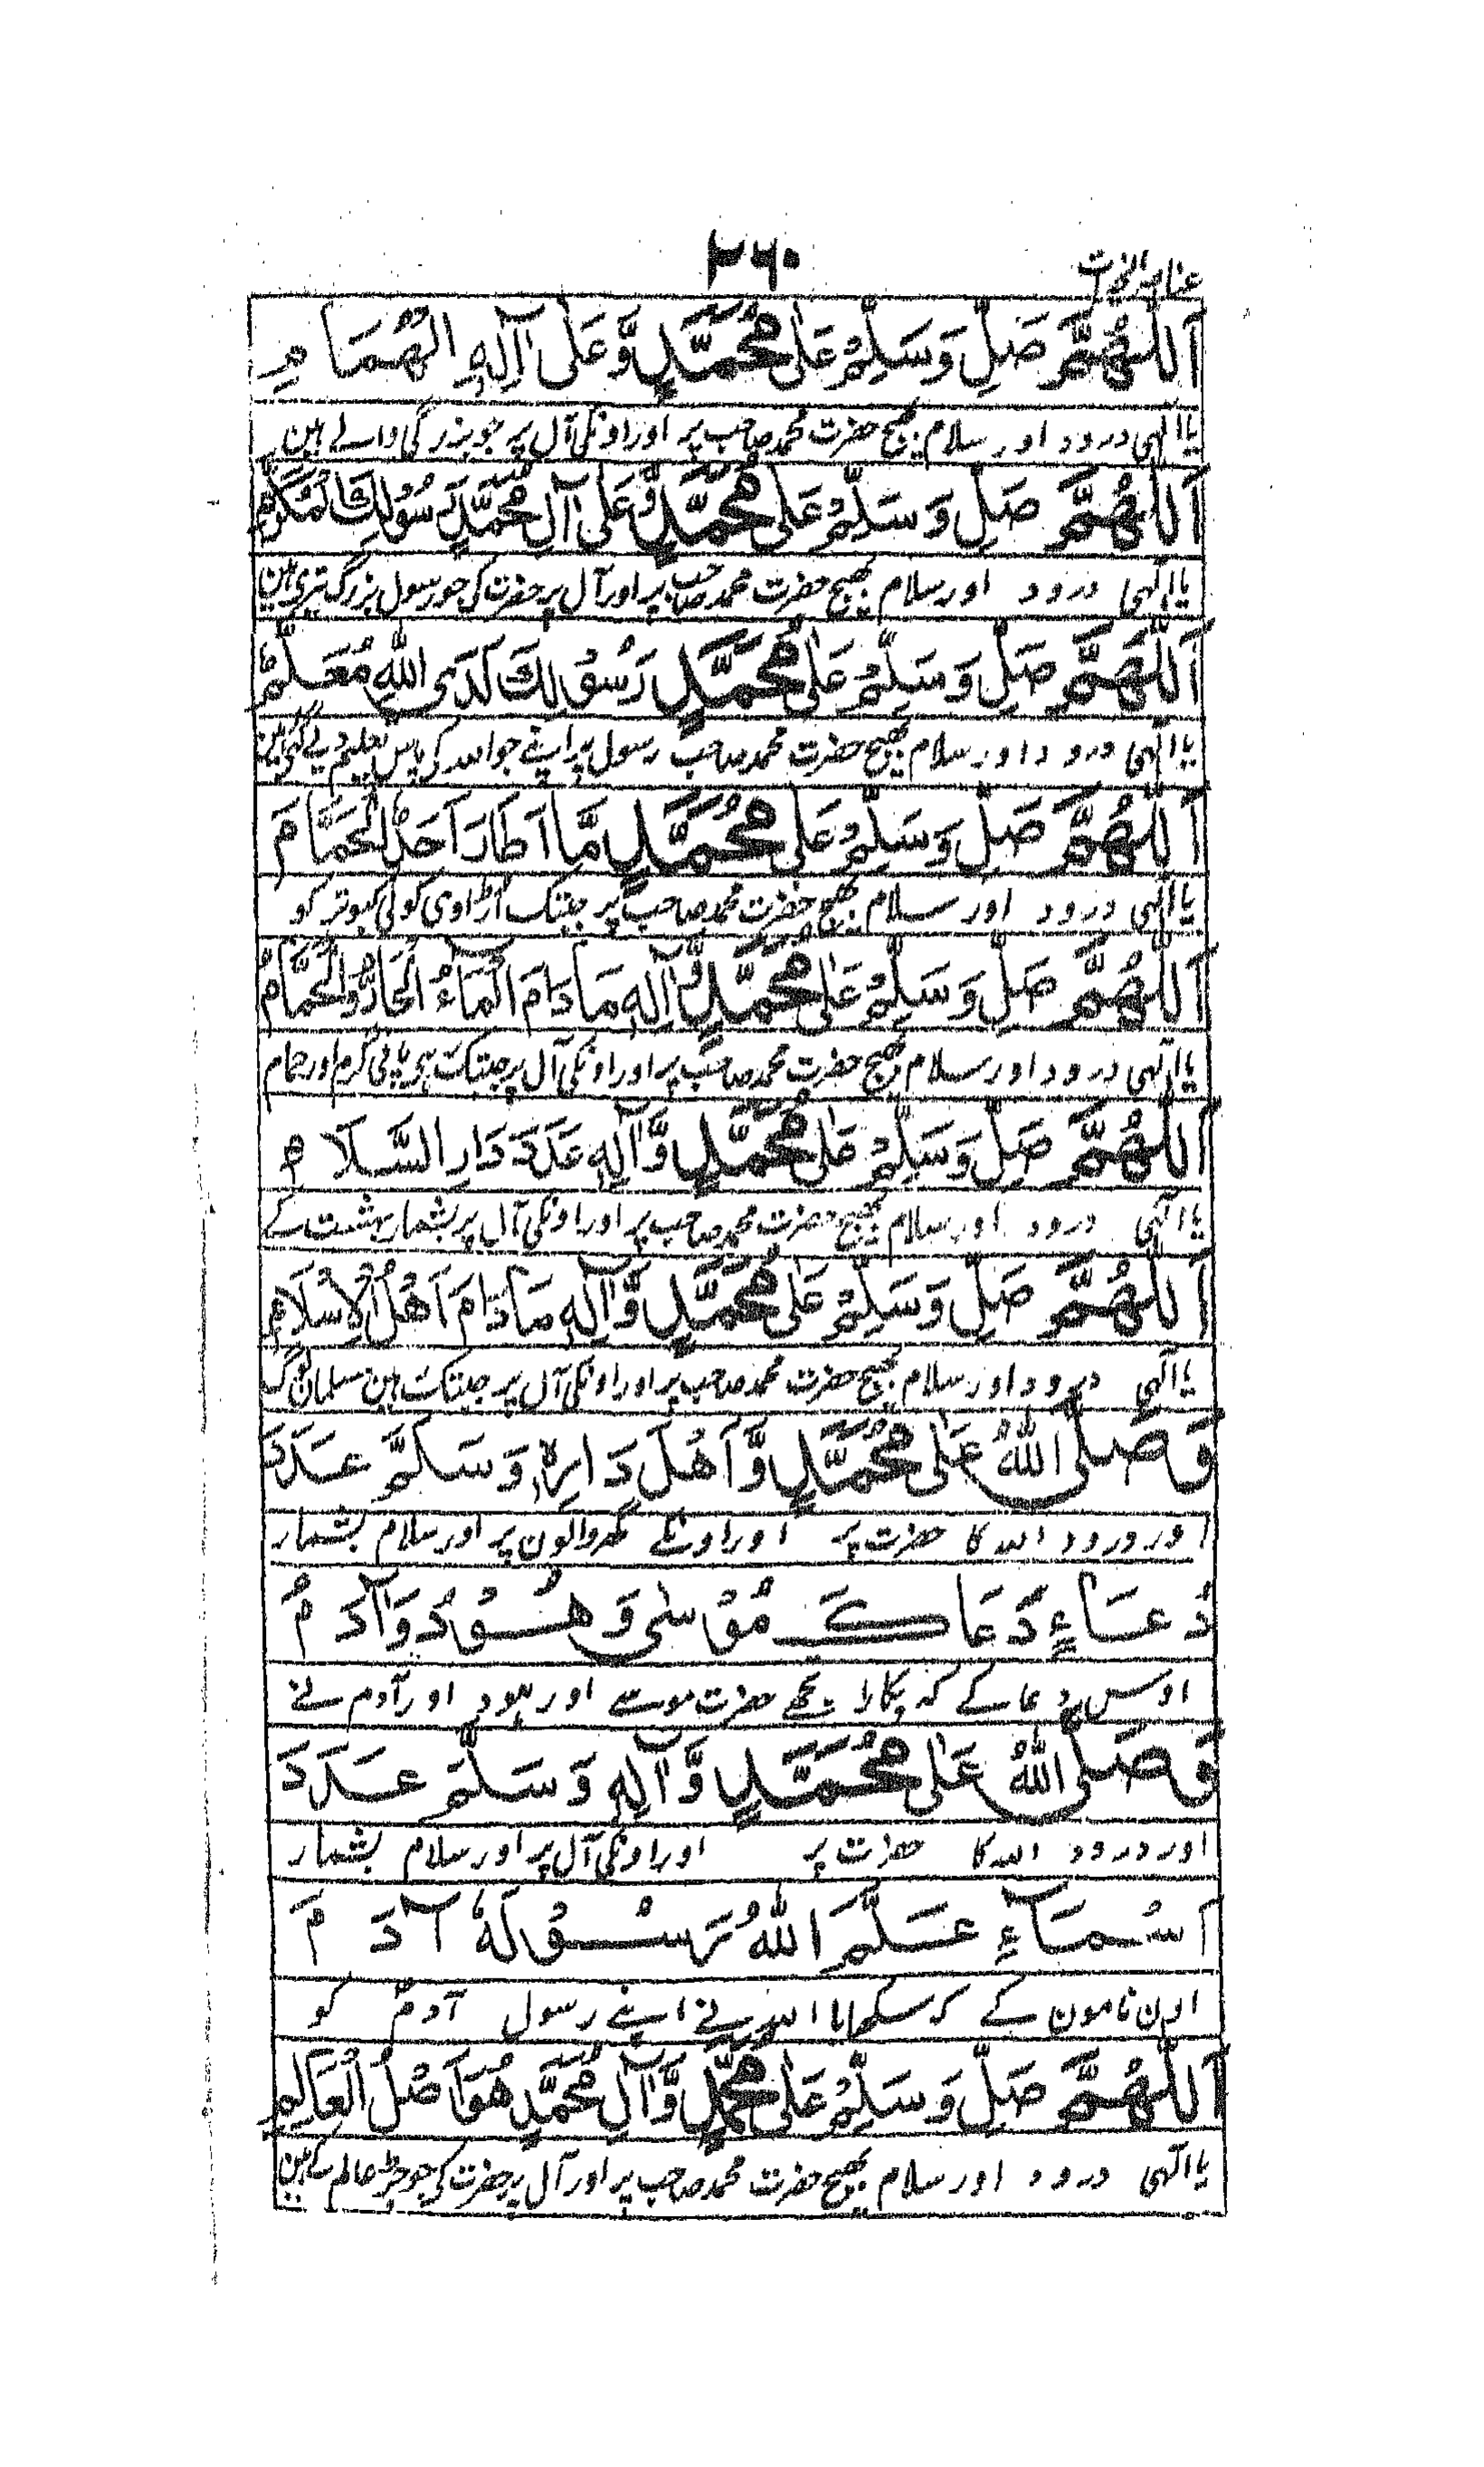 ۲۶۰
اَللّٰهُمَّ صَلِّ وَسَلِّمْ عَلٰى مُحَمَّدٍ وَّعَلٰى اٰلِهِ الْهُمَامِ
یا الٰہی درود اور سلام بھیج حضرت محمد صاحب پر اور اونکی آل پر جو بزرگی والے ہین
اَللّٰهُمَّ صَلِّ وَسَلِّمْ عَلٰى مُحَمَّدٍ وَّعَلٰى اٰلِ مُحَمَّدٍ رَسُوْلِكَ الْمُكَرَّمِ
یا الٰہی درود اور سلام بھیج حضرت محمد صاحب پر اور آل پر حضرت کی جو رسول بزرگ تیری ہین
اَللّٰهُمَّ صَلِّ وَسَلِّمْ عَلٰى مُحَمَّدٍ رَسُوْلِكَ لَدَى اللّٰهِ مُعَلَّمٌ
یا الٰہی درود اور سلام بھیج حضرت محمد صاحب رسول پر اپنے جو اللہ کی پاس تعلیم دیے گئی ہین
اَللّٰهُمَّ صَلِّ وَسَلِّمْ عَلٰى مُحَمَّدٍ مَّا اَطَارَ اَحَدٌ الْحَمَّامَ
یا الٰہی درود اور سلام بھیج حضرت محمد صاحب پر جبتک اڑاوی کوئی کبوتر کو
اَللّٰهُمَّ صَلِّ وَسَلِّمْ عَلٰى مُحَمَّدٍ وَّاٰلِهِ مَا دَامَ الْمَآءُ الْحَارُّ وَالْحَمَّامُ
یا الٰہی درود اور سلام بھیج حضرت محمد صاحب پر اور اونکی آل پر جبتک ہی پانی گرم اور حمام
اَللّٰهُمَّ صَلِّ وَسَلِّمْ عَلٰى مُحَمَّدٍ وَّاٰلِهِ عَدَدَ دَارِ السَّلَامِ
یا الٰہی درود اور سلام بھیج حضرت محمد صاحب پر اور اونکی آل پر بشمار بہشت کے
اَللّٰهُمَّ صَلِّ وَسَلِّمْ عَلٰى مُحَمَّدٍ وَّاٰلِهِ مَا دَامَ اَهْلُ الْاِسْلَامِ
یا الٰہی درود اور سلام بھیج حضرت محمد صاحب پر اور اونکی آل پر جبتک ہین مسلمان لوگ
وَصَلَّى اللّٰهُ عَلٰى مُحَمَّدٍ وَّاَهْلِ دَارِهٖ وَسَلَّمَ عَدَدَ
اور درود اللہ کا حضرت پر اور اونکے گھر والون پر اور سلام بشمار
دُعَاءٍ دَعَاكَ مُوْسٰى وَهُوْدُ وَاٰدَمُ
اوس دعا کے کہ پکارا تجھے حضرت موسے اور ہود اور آدم نے
وَصَلَّى اللّٰهُ عَلٰى مُحَمَّدٍ وَّاٰلِهِ وَسَلَّمَ عَدَدَ
اور درود اللہ کا حضرت پر اور اونکی آل پر اور سلام بشمار
اَسْمَآءٍ عَلَّمَ اللّٰهُ رَسُوْلَهٗ اٰدَمَ
اون نامون کے کہ سکھایا اللہ نے اپنے رسول آدم کو
اَللّٰهُمَّ صَلِّ وَسَلِّمْ عَلٰى مُحَمَّدٍ وَّاٰلِ مُحَمَّدٍ هُوَ اَصْلُ الْعَالَمِ
یا الٰہی درود اور سلام بھیج حضرت محمد صاحب پر اور آل پر حضرت کی جو جڑ عالم کے ہین